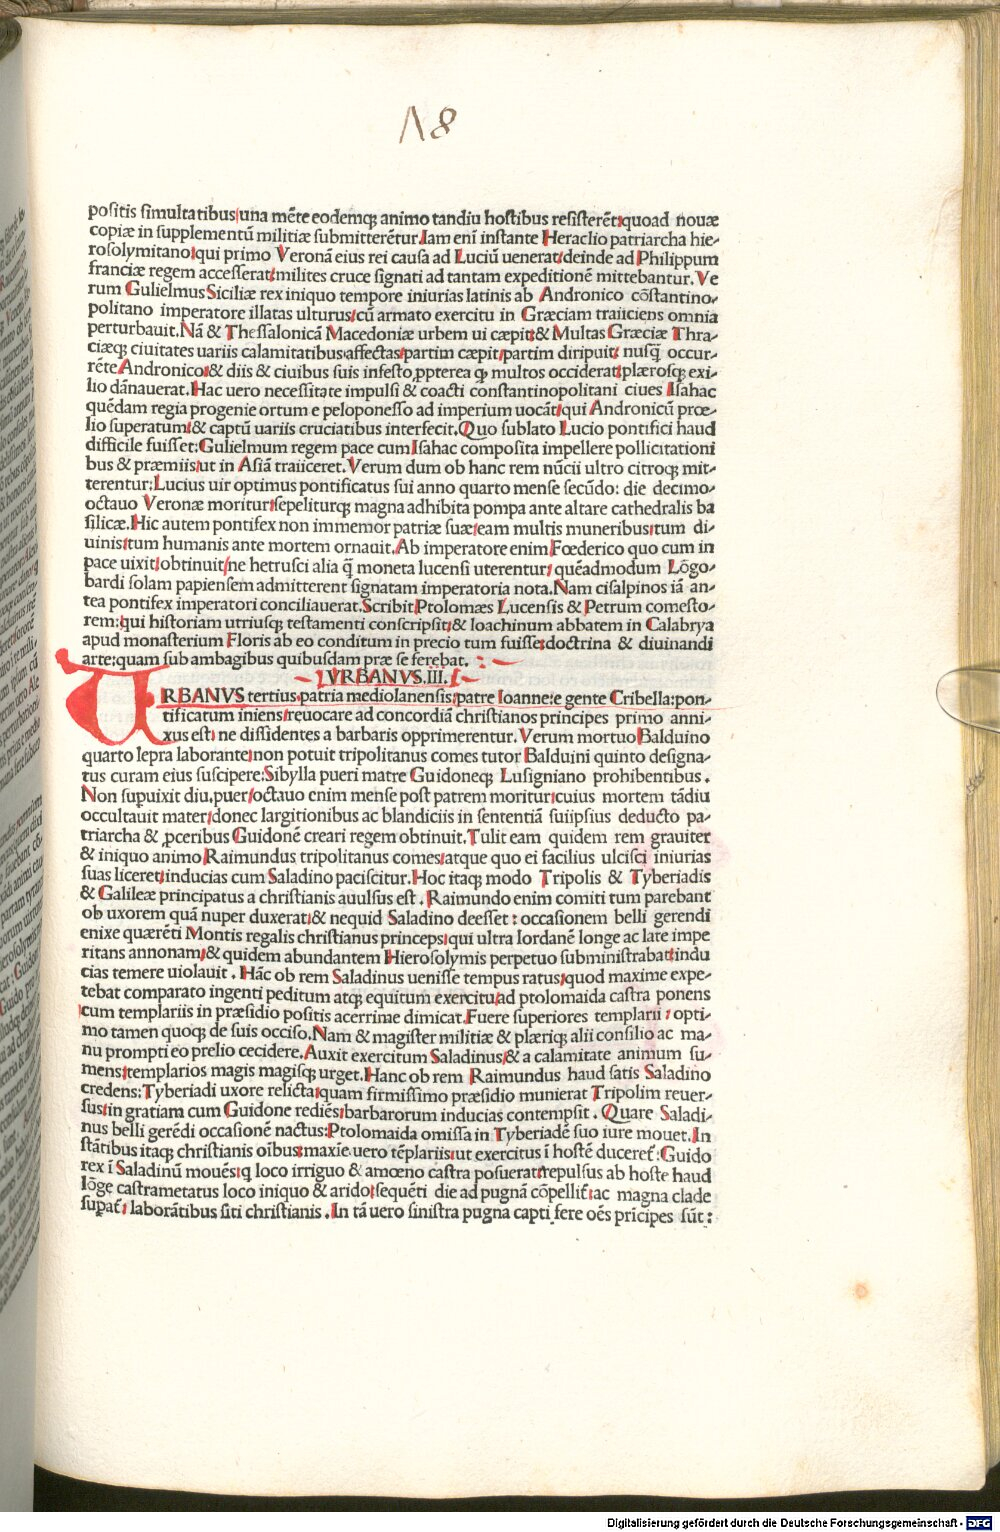 18
positis simultatibus/una mēte eodemq; animo tandiu hostibus resisterēt:quoad nouæ
copiæ in supplementū militiæ submitterētur.Iam enī instante Heraclio patriarcha hie-
rosolymitano:qui primo Veronā eius rei causa ad Luciū uenerat/deinde ad Philippum
franciæ regem accesserat/milites cruce signati ad tantam expeditionē mittebantur.Ve
rum Gulielmus Siciliæ rex iniquo tempore iniurias latinis ab Andronico cōstantino-
politano imperatore illatas ulturus/cū armato exercitu in Græciam traiiciens omnia
perturbauit.Nā & Thessalonicā Macedoniæ urbem ui cæpit:& Multas Græciæ Thra-
ciæq; ciuitates uariis calamitatibus affectas/partim cæpit/partim diripuit: nusq̄ occur-
rēte Andronico:& diis & ciuibus suis infesto ꝓpterea ꝙ multos occiderat:plærosq; exi-
lio dānauerat.Hac uero necessitate impulsi & coacti constantinopolitani ciues Isahac
quēdam regia progenie ortum e peloponesso ad imperium uocāt:qui Andronicū prœ-
lio superatum:& captū uariis cruciatibus interfecit.Quo sublato Lucio pontifici haud
difficile fuisset:Gulielmum regem pace cum Isahac composita impellere pollicitationi
bus & præmiis:ut in Asiā traiiceret.Verum dum ob hanc rem nūcii ultro citroq; mit-
terentur:Lucius uir optimus pontificatus sui anno quarto mense secūdo: die decimo-
octauo Veronæ moritur:sepeliturq; magna adhibita pompa ante altare cathedralis ba
silicæ.Hic autem pontifex non immemor patriæ suæ:eam multis muneribus:tum di-
uinis:tum humanis ante mortem ornauit.Ab imperatore enim Fœderico quo cum in
pace uixit:obtinuit/ne hetrusci alia q̄ moneta lucensi uterentur: quēadmodum Lōgo-
bardi solam papiensem admitterent signatam imperatoria nota.Nam cisalpinos iā an-
tea pontifex imperatori conciliauerat.Scribit Ptolomæs Lucensis & Petrum comesto-
rem:qui historiam utriusq; testamenti conscripsit:& Ioachinum abbatem in Calabrya
apud monasterium Floris ab eo conditum in precio tum fuisse:doctrina & diuinandi
arte:quam sub ambagibus quibusdam præ se ferebat.
VRBANVS.III.
VRBANVS tertius patria mediolanensis:patre Ioanne:e gente Cribella:pon-
tificatum iniens/reuocare ad concordiā christianos principes primo anni-
xus est: ne dissidentes a barbaris opprimerentur.Verum mortuo Balduino
quarto lepra laborante:non potuit tripolitanus comes tutor Balduini quinto designa-
tus curam eius suscipere:Sibylla pueri matre Guidoneq; Lusigniano prohibentibus.
Non supuixit diu.puer/octauo enim mense post patrem moritur:cuius mortem tādiu
occultauit mater:donec largitionibus ac blandiciis in sententiā suiipsius deducto pa-
triarcha & ꝓceribus Guidonē creari regem obtinuit.Tulit eam quidem rem grauiter
& iniquo animo Raimundus tripolitanus comes:atque quo ei facilius ulcisci iniurias
suas liceret:inducias cum Saladino paciscitur.Hoc itaq; modo Tripolis & Tyberiadis
& Galileæ principatus a christianis auulsus est. Raimundo enim comiti tum parebant
ob uxorem quā nuper duxerat:& nequid Saladino deesset: occasionem belli gerendi
enixe quærēti Montis regalis christianus princeps:qui ultra Iordanē longe ac late impe
ritans annonam:& quidem abundantem Hierosolymis perpetuo subministrabat:indu
cias temere uiolauit. Hāc ob rem Saladinus uenisse tempus ratus:quod maxime expe-
tebat comparato ingenti peditum atq; equitum exercitu:ad ptolomaida castra ponens
cum templariis in præsidio positis acerrinæ dimicat.Fuere superiores templarii: opti-
mo tamen quoq; de suis occiso.Nam & magister militiæ & plæriq; alii consilio ac ma-
nu prompti eo prelio cecidere.Auxit exercitum Saladinus:& a calamitate animum su-
mens:templarios magis magisq; urget.Hanc ob rem Raimundus haud satis Saladino
credens:Tyberiadi uxore relicta:quam firmissimo præsidio munierat Tripolim reuer-
sus:in gratiam cum Guidone rediēs:barbarorum inducias contempsit. Quare Saladi-
nus belli gerēdi occasionē nactus:Ptolomaida omissa in Tyberiadē suo iure mouet.In
stātibus itaq; christianis oībus:maxīe uero tēplariis:ut exercitus ī hostē duceret̄:Guido
rex ī Saladinū mouēs:q loco irriguo & amœno castra posuerat:repulsus ab hoste haud
lōge castrametatus loco iniquo & arido:sequēti die ad pugnā cōpellit̄:ac magna clade
supat̄: laborātibus siti christianis. In tā uero sinistra pugna capti fere oēs prīcipes sūt:
Digitalisierung gefördert durch die Deutsche Forschungsgemeinschaft - DFG